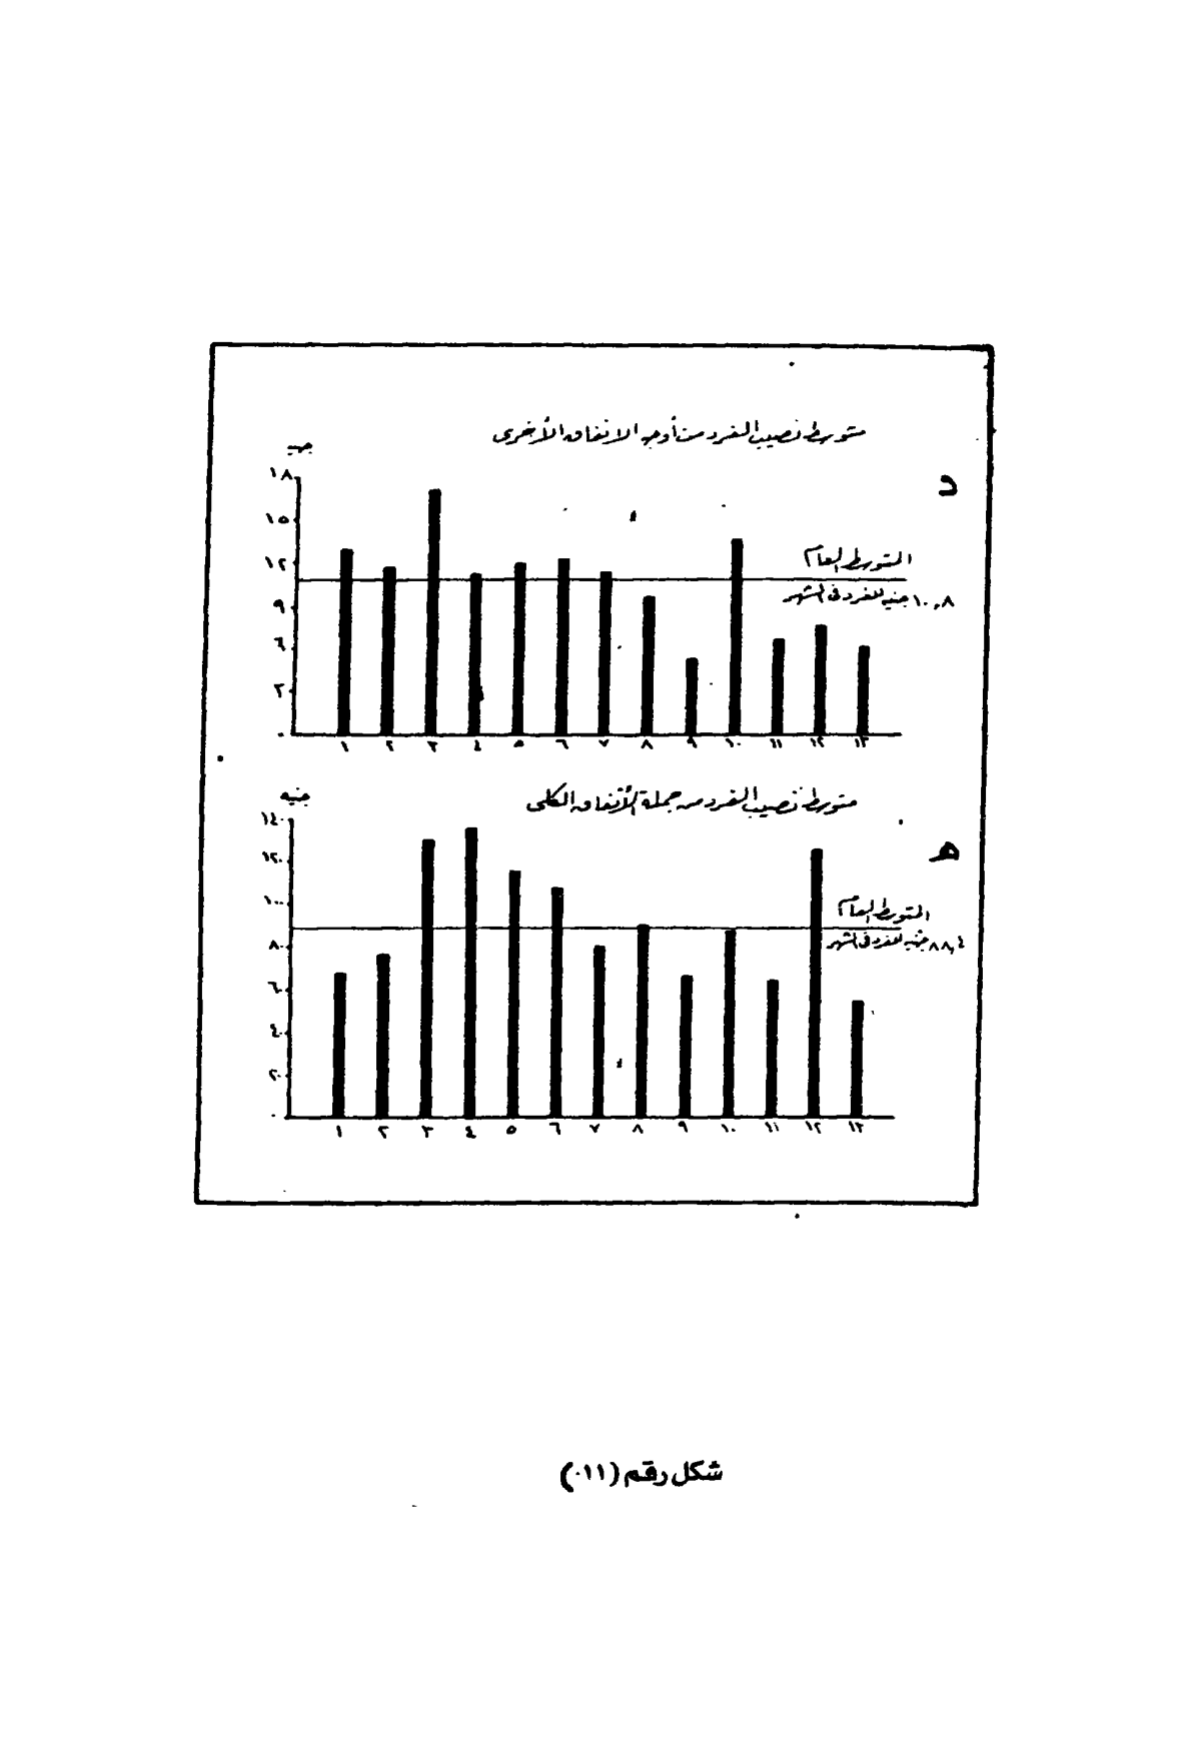 متوسط نصيب الفرد من أوجه الانفاق الأخرى
جنيه
د
١٨
١٥
١٢
٩
٦
٣
٠
المتوسط العام
١٠,٨ جنيه للفرد فى الشهر
١ ٢ ٣ ٤ ٥ ٦ ٧ ٨ ٩ ١٠ ١١ ١٢ ١٣
متوسط نصيب الفرد من جملة الأنفاق الكلى
جنيه
هـ
١٤٠
١٢٠
١٠٠
٨٠
٦٠
٤٠
٢٠
٠
المتوسط العام
٨٨,٤ جنيه للفرد فى الشهر
١ ٢ ٣ ٤ ٥ ٦ ٧ ٨ ٩ ١٠ ١١ ١٢ ١٣
شكل رقم (١١٠)